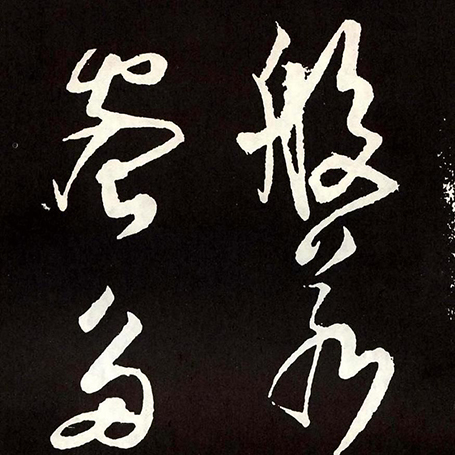 般若
蜜多